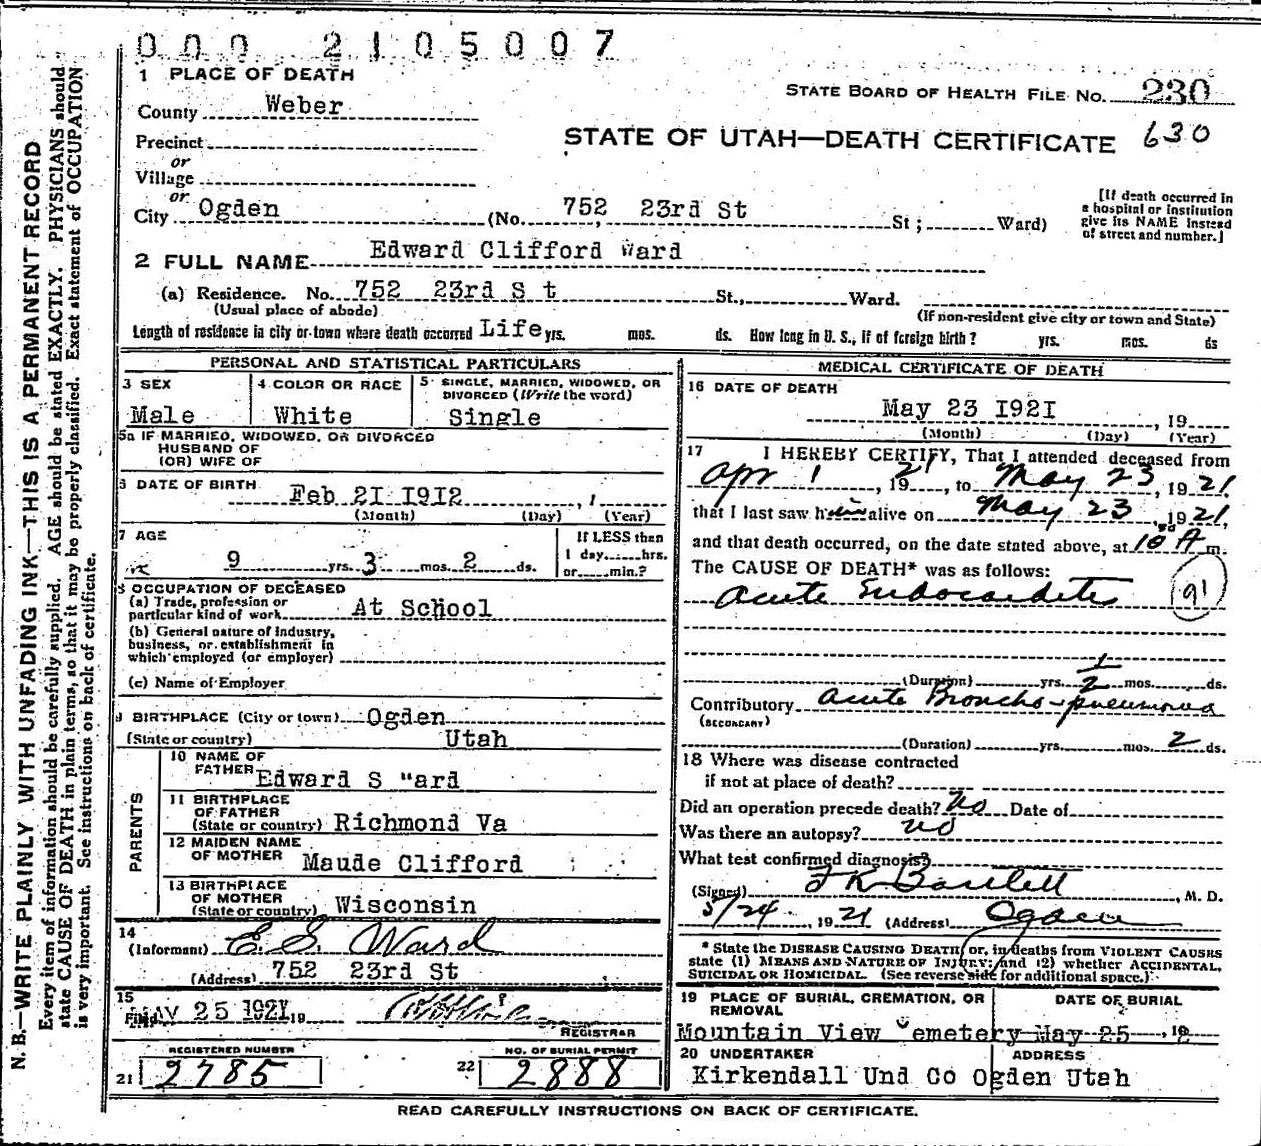 000 2105007
1 PLACE OF DEATH
STATE BOARD OF HEALTH FILE NO. 230
County Weber
STATE OF UTAH—DEATH CERTIFICATE 630
Precinct
or
Village
or
City Ogden (No. 752 23rd St St; Ward)
[If death occurred in
a hospital or institution
give its NAME instead
of street and number.]
2 FULL NAME Edward Clifford Ward
(a) Residence. No. 752 23rd S t St., Ward.
(Usual place of abode)
(If non-resident give city or town and State)
Length of residence in city or town where death occurred Life yrs. mos. ds. How long in U. S., if of foreign birth? yrs. mos. ds
PERSONAL AND STATISTICAL PARTICULARS
3 SEX
Male
4 COLOR OR RACE
White
5 SINGLE, MARRIED, WIDOWED, OR
DIVORCED (Write the word)
Single
5a IF MARRIED, WIDOWED, OR DIVORCED
HUSBAND OF
(OR) WIFE OF
6 DATE OF BIRTH Feb 21 1912
(Month) (Day) (Year)
7 AGE
9 yrs. 3 mos. 2 ds.
If LESS than
1 day, hrs.
or min.?
8 OCCUPATION OF DECEASED
(a) Trade, profession or
particular kind of work At School
(b) General nature of industry,
business, or establishment in
which employed (or employer)
(c) Name of Employer
9 BIRTHPLACE (City or town) Ogden
(State or country) Utah
PARENTS
10 NAME OF
FATHER Edward S "ard
11 BIRTHPLACE
OF FATHER
(State or country) Richmond Va
12 MAIDEN NAME
OF MOTHER Maude Clifford
13 BIRTHPLACE
OF MOTHER
(State or country) Wisconsin
14
(Informant) E. S. Ward
(Address) 752 23rd St
15
Filed 25 1921 19
REGISTRAR
REGISTERED NUMBER
21 2785
NO. OF BURIAL PERMIT
22 2888
MEDICAL CERTIFICATE OF DEATH
16 DATE OF DEATH
May 23 1921, 19
(Month) (Day) (Year)
17 I HEREBY CERTIFY, That I attended deceased from
Apr 1, 1921, to May 23, 1921
that I last saw him alive on May 23, 1921,
and that death occurred, on the date stated above, at 10 A m.
The CAUSE OF DEATH* was as follows:
Acute Endocarditis 91
(Duration) yrs. 1/2 mos. ds.
Contributory Acute Broncho-pneumonia
(SECONDARY)
(Duration) yrs. mos. 2 ds.
18 Where was disease contracted
if not at place of death?
Did an operation precede death? No Date of
Was there an autopsy? no
What test confirmed diagnosis?
(Signed) F K Bartlett, M. D.
5/24, 1921 (Address) Ogden
* State the DISEASE CAUSING DEATH, or, in deaths from VIOLENT CAUSES
state (1) MEANS AND NATURE OF INJURY; and (2) whether ACCIDENTAL,
SUICIDAL OR HOMICIDAL. (See reverse side for additional space.)
19 PLACE OF BURIAL, CREMATION, OR
REMOVAL
Mountain View "emetery
DATE OF BURIAL
May 25, 19
20 UNDERTAKER
Kirkendall Und Co
ADDRESS
Ogden Utah
READ CAREFULLY INSTRUCTIONS ON BACK OF CERTIFICATE.
N. B.—WRITE PLAINLY WITH UNFADING INK—THIS IS A PERMANENT RECORD
Every item of information should be carefully supplied. AGE should be stated EXACTLY. PHYSICIANS should
state CAUSE OF DEATH in plain terms, so that it may be properly classified. Exact statement of OCCUPATION
is very important. See instructions on back of certificate.